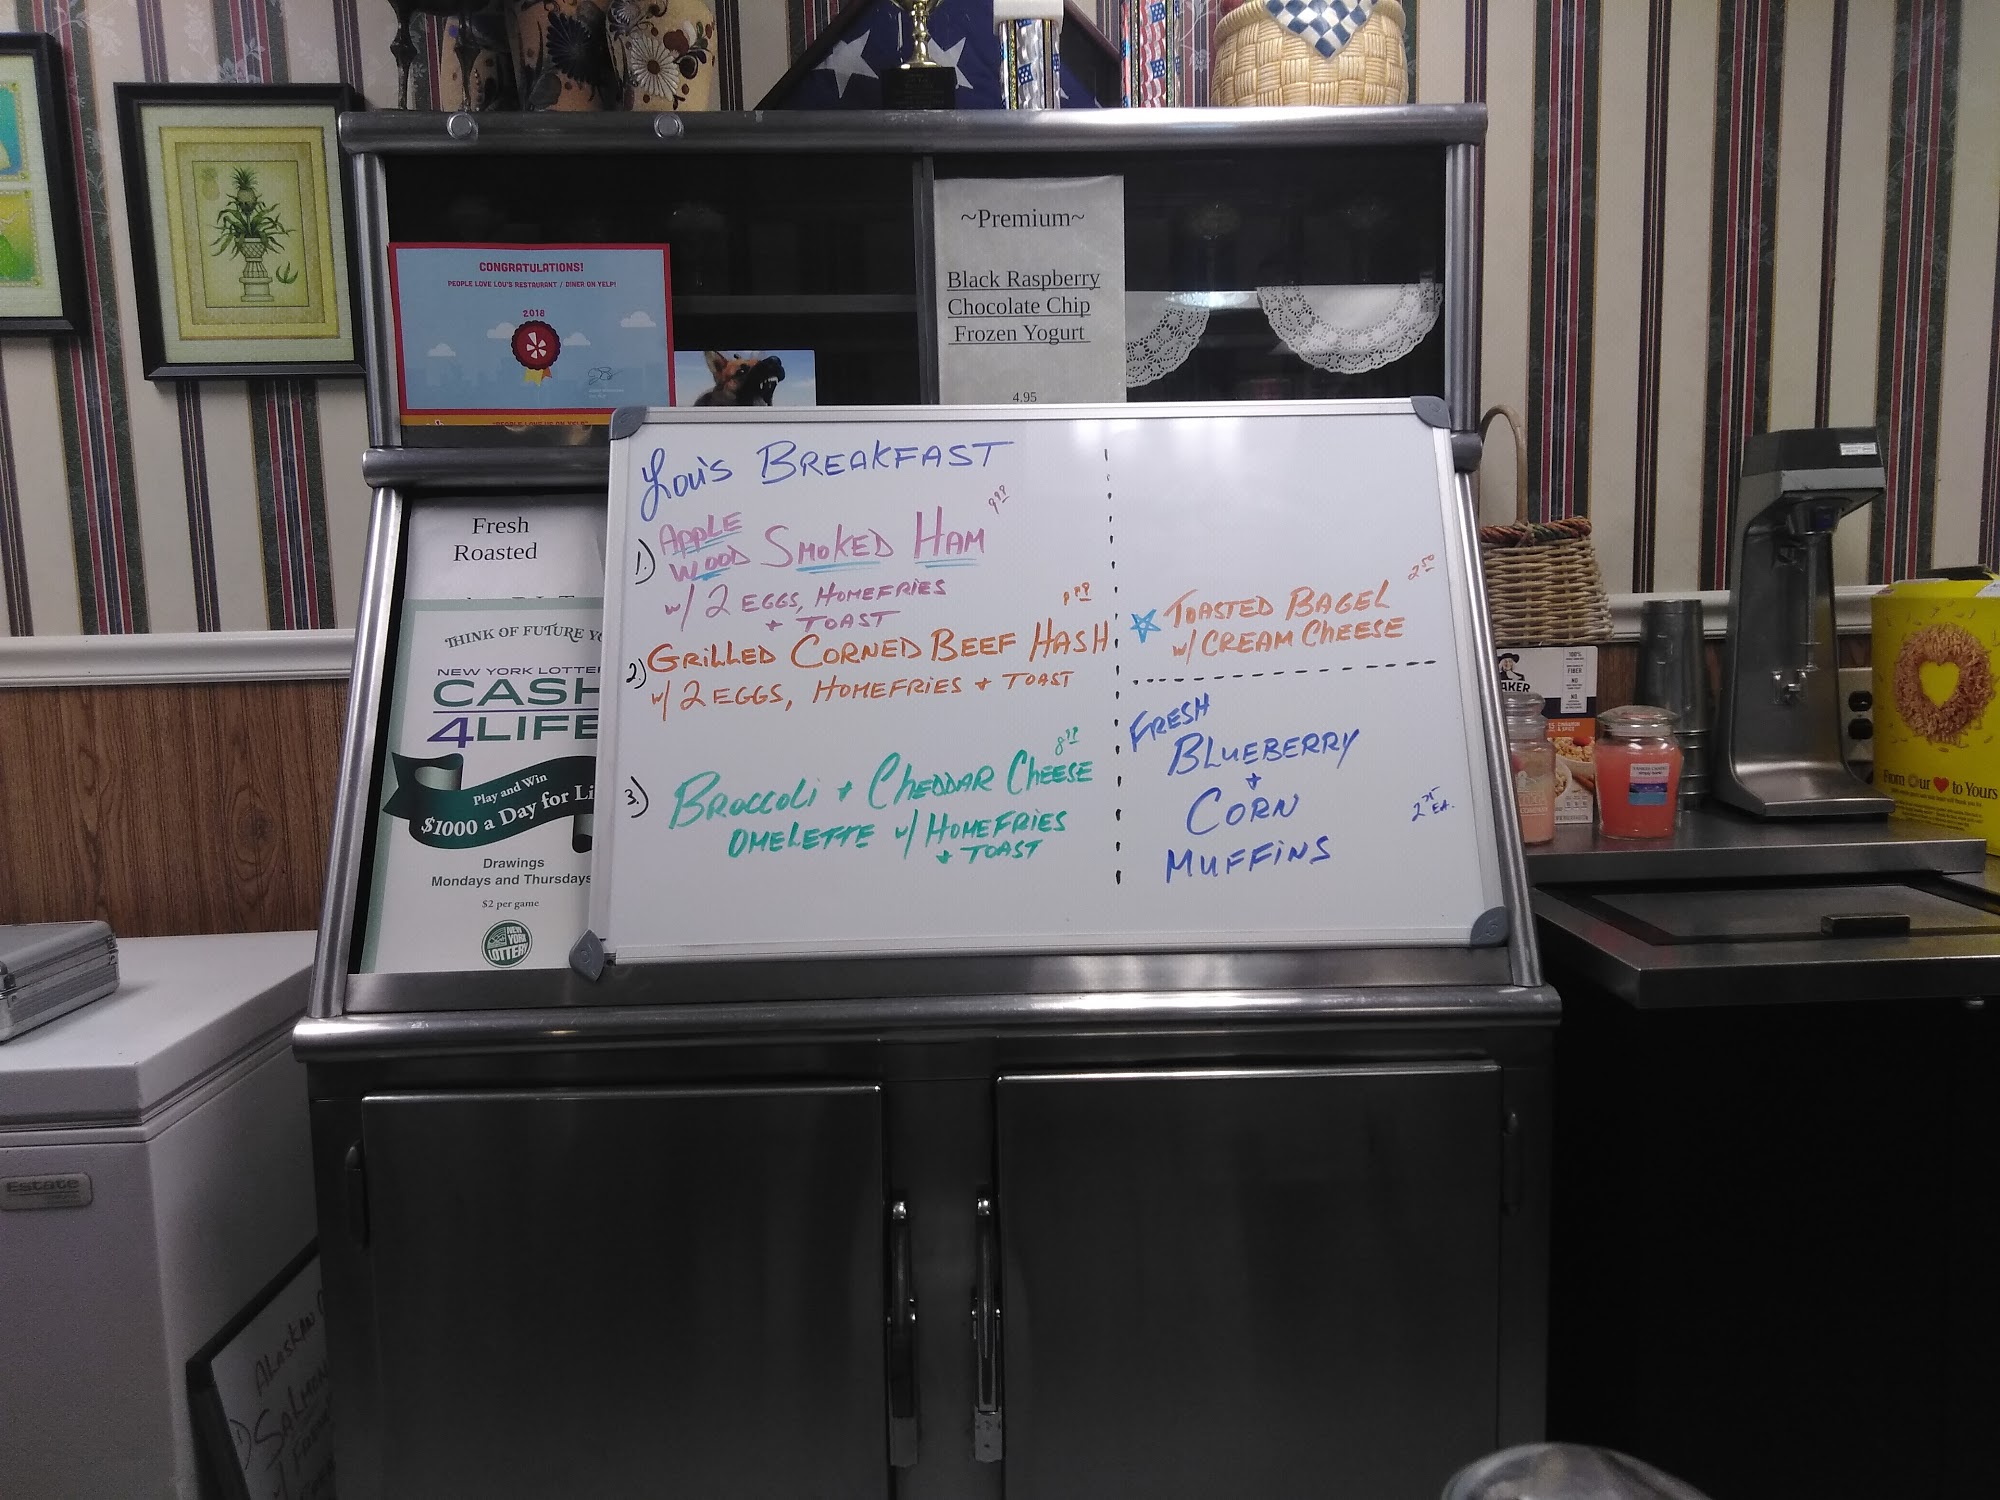 CONGRATULATIONS!
PEOPLE LOVE LOU'S RESTAURANT / DINER ON YELP!
2018
~Premium~
Black Raspberry
Chocolate Chip
Frozen Yogurt
4.95
Fresh
Roasted
THINK OF FUTURE YO
NEW YORK LOTTE
CASH
4LIFE
Play and Win
$1000 a Day for Li
Drawings
Mondays and Thursdays
$2 per game
NEW
YORK
LOTTERY
Lou's BREAKFAST
1.) APPLE WOOD SMOKED HAM 9.99
w/ 2 EGGS, HOMEFRIES
+ TOAST
2.) GRILLED CORNED BEEF HASH
w/ 2 EGGS, HOMEFRIES + TOAST
3.) BROCCOLI + CHEDDAR CHEESE 8.99
OMELETTE w/ HOMEFRIES
+ TOAST
TOASTED BAGEL 2.50
w/ CREAM CHEESE
FRESH
BLUEBERRY
+
CORN 2.75 EA.
MUFFINS
AKER
From Our ♥ to Yours
Estate
ALASKAN
1) SALMON